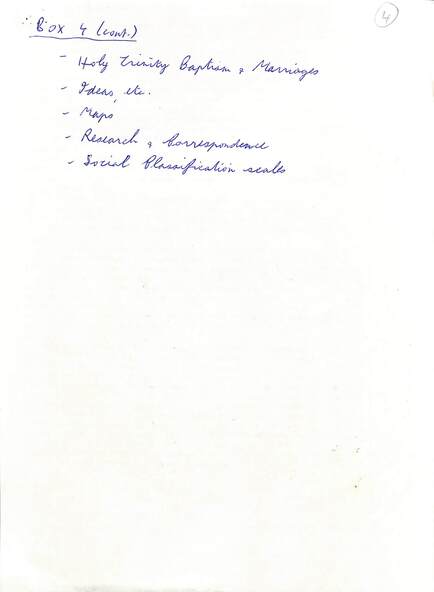 4
Box 4 (cont.)
- Holy Trinity Baptism & Marriages
- Ideas, etc.
- Maps
- Research & Correspondence
- Social Classification scales